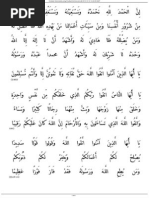 إِنَّ الْحَمْدَ لِلَّهِ نَحْمَدُهُ وَنَسْتَعِينُهُ
مِنْ شُرُورِ أَنْفُسِنَا وَمِنْ سَيِّئَاتِ أَعْمَالِنَا مَنْ يَهْدِهِ اللَّهُ
وَمَنْ يُضْلِلْ فَلَا هَادِيَ لَهُ وَأَشْهَدُ أَنْ لَا إِلَهَ إِلَّا اللَّهُ
وَأَشْهَدُ أَنَّ مُحَمَّدًا عَبْدُهُ وَرَسُولُهُ
يَا أَيُّهَا الَّذِينَ آمَنُوا اتَّقُوا اللَّهَ حَقَّ تُقَاتِهِ وَلَا تَمُوتُنَّ إِلَّا وَأَنْتُمْ مُسْلِمُونَ
يَا أَيُّهَا النَّاسُ اتَّقُوا رَبَّكُمُ الَّذِي خَلَقَكُمْ مِنْ نَفْسٍ وَاحِدَةٍ
وَخَلَقَ مِنْهَا زَوْجَهَا وَبَثَّ مِنْهُمَا رِجَالًا كَثِيرًا وَنِسَاءً
وَاتَّقُوا اللَّهَ الَّذِي تَسَاءَلُونَ بِهِ وَالْأَرْحَامَ إِنَّ اللَّهَ كَانَ عَلَيْكُمْ رَقِيبًا
يَا أَيُّهَا الَّذِينَ آمَنُوا اتَّقُوا اللَّهَ وَقُولُوا قَوْلًا سَدِيدًا
يُصْلِحْ لَكُمْ أَعْمَالَكُمْ وَيَغْفِرْ لَكُمْ ذُنُوبَكُمْ
وَمَنْ يُطِعِ اللَّهَ وَرَسُولَهُ